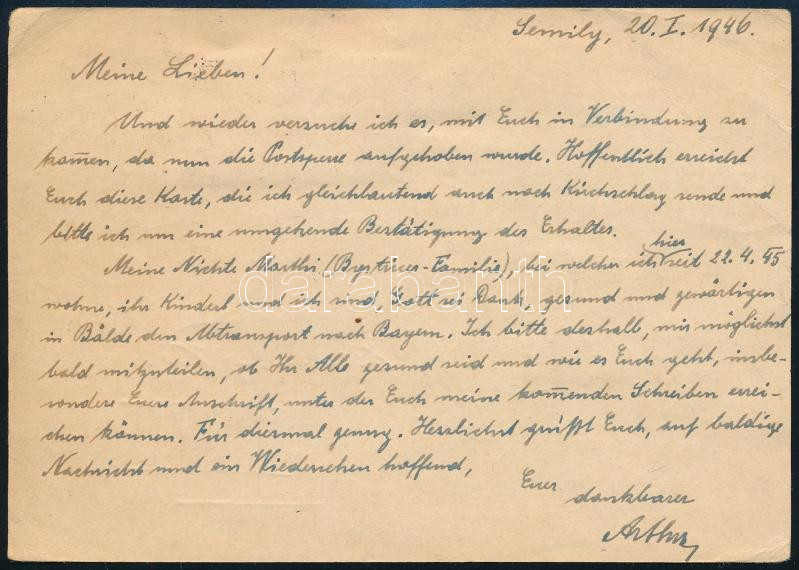 Semily, 20. I. 1946.
Meine Lieben!
Und wieder versuche ich es, mit Euch in Verbindung zu
kom̅en, da nun die Postsperre aufgehoben wurde. Hoffentlich erreicht
Euch diese Karte, die ich gleichlautend auch nach Kirchschlag sende und
bitte ich um eine umgehende Bestätigung des Erhaltes.
hier
Meine Nichte Marthi (Bystricer-Familie), bei welcher ich seit 22. 4. 45
wohne, ihr Kinderl und ich sind, Gott sei Dank, gesund und gewärtigen
in Bälde den Abtransport nach Bayern. Ich bitte deshalb, mir möglichst
bald mitzuteilen, ob Ihr Alle gesund seid und wie es Euch geht, insbe-
sondere Euere Anschrift, unter der Euch meine kom̅enden Schreiben errei-
chen können. Für diesmal genug. Herzlichst grüßt Euch, auf baldige
Nachricht und ein Wiedersehen hoffend,
Euer
dankbarer
Arthur
darabanth